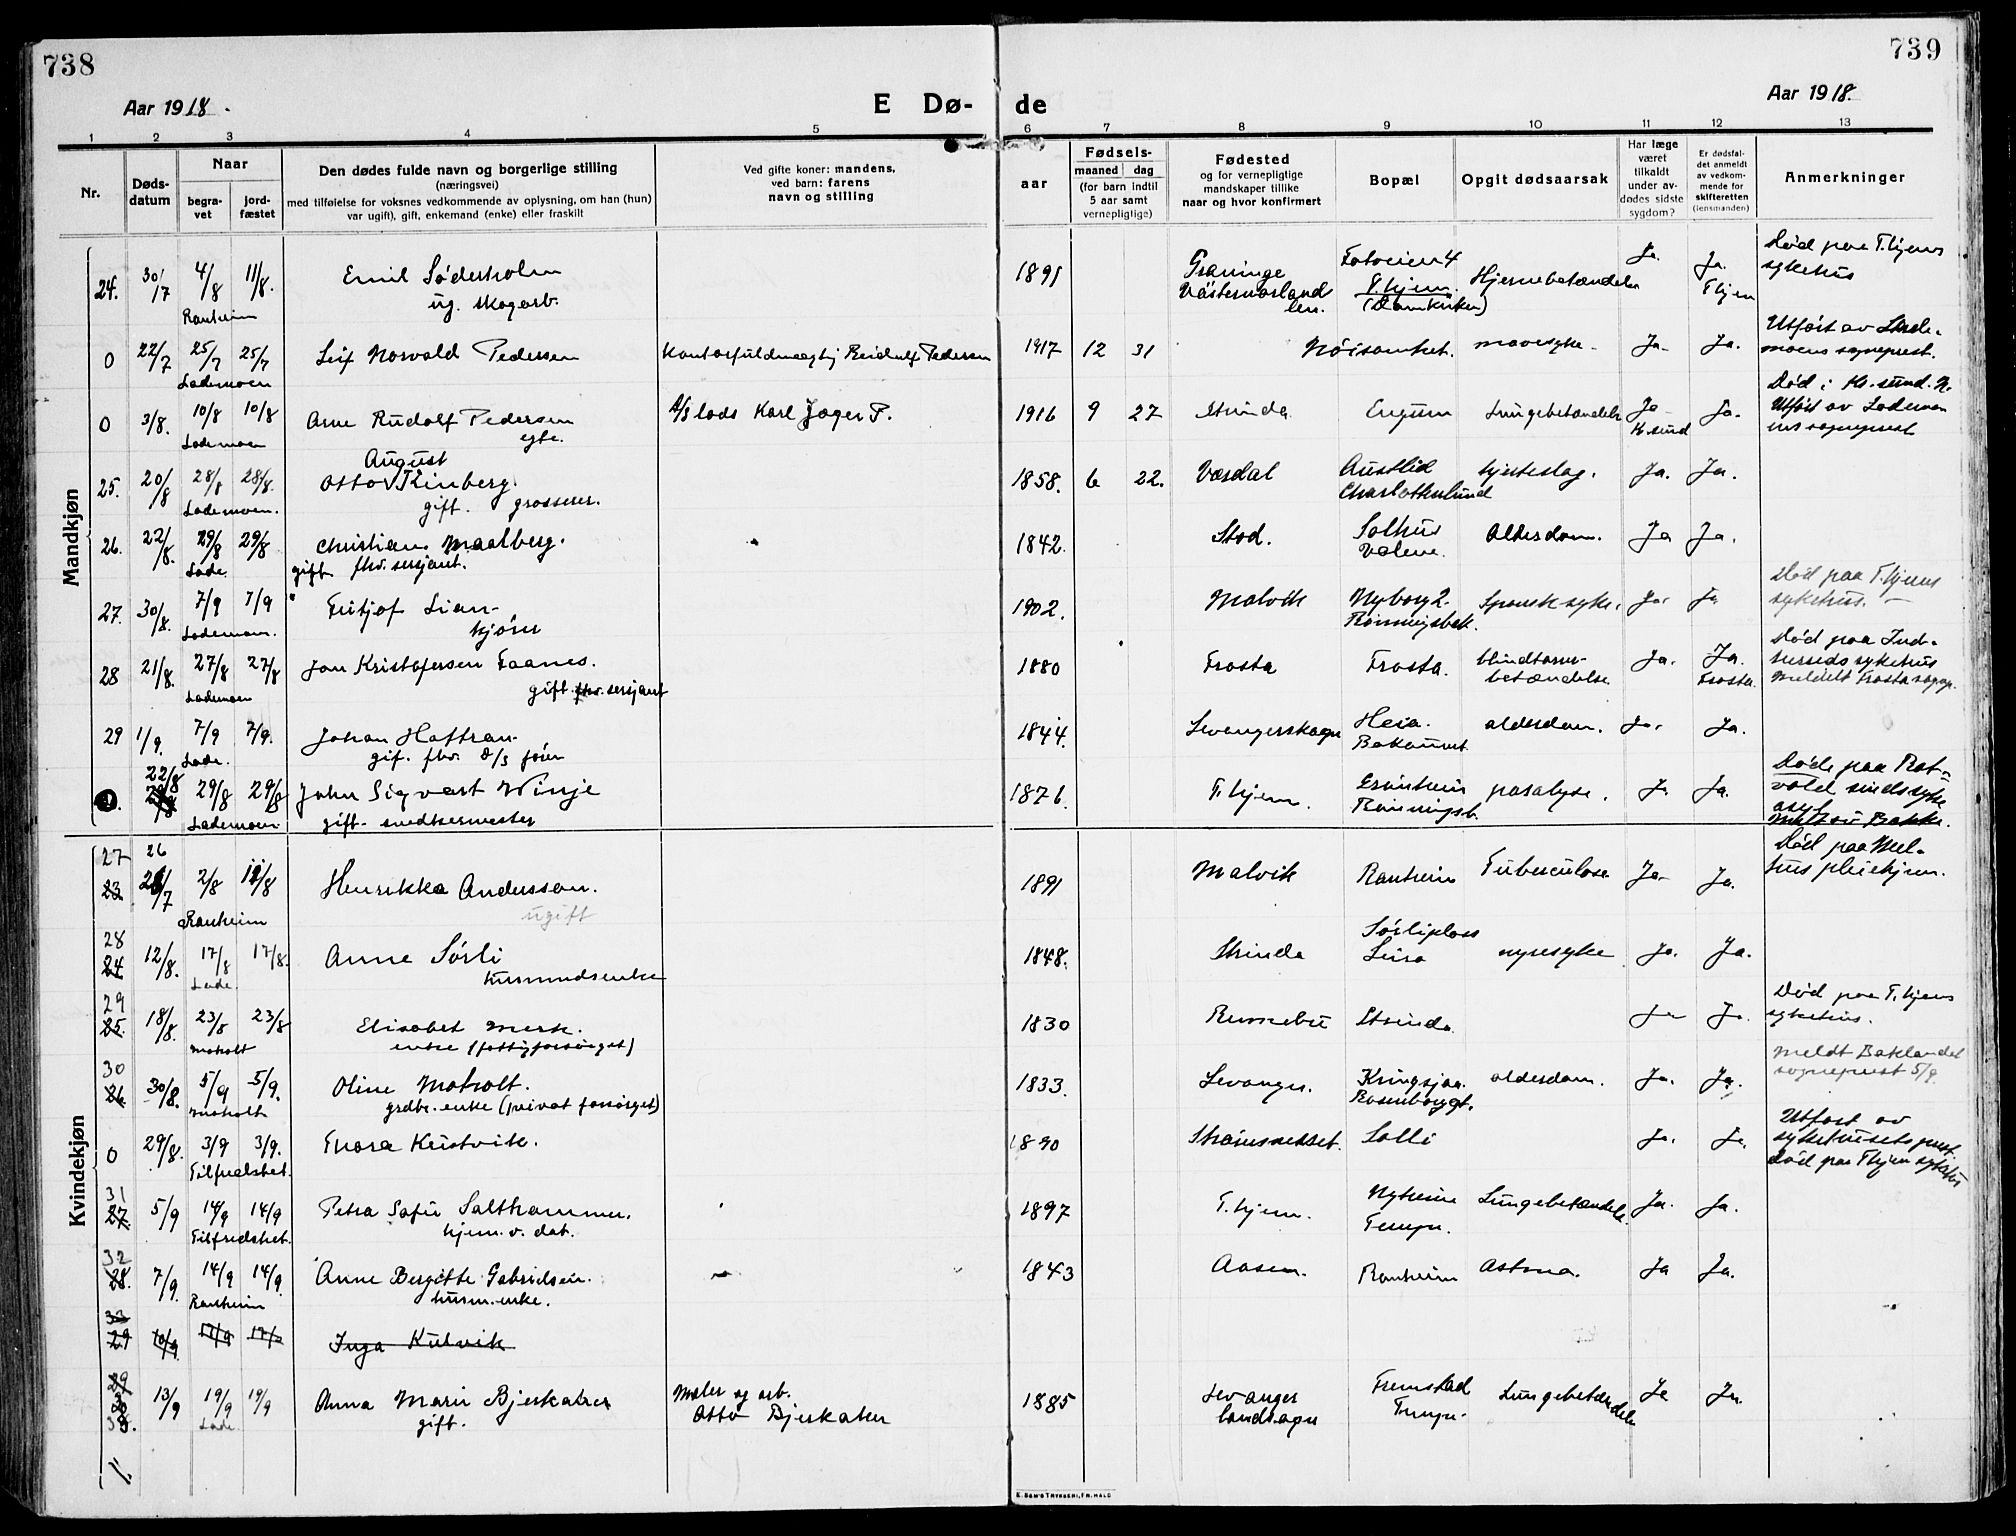 738
739
Aar 1918.
E Dø-
de
Aar 1918.
1 2 3 4 5 6 7 8 9 10 11 12 13
Nr.
Døds-
datum
Naar
begra-
vet
jord-
fæstet
Den dødes fulde navn og borgerlige stilling
(næringsvei)
med tilføielse for voksnes vedkommende av oplysning, om han (hun)
var ugift), gift, enkemand (enke) eller fraskilt
Ved gifte koner: mandens,
ved barn: farens
navn og stilling
aar
Fødsels-
maaned dag
(for barn indtil
5 aar samt
vernepligtige)
Fødested
og for vernepligtige
mandskaper tillike
naar og hvor konfirmert
Bopæl
Opgit dødsaarsak
Har læge
været
tilkaldt
under av-
dødes sidste
sygdom?
Er dødsfal-
det anmeldt
av vedkom-
mende for
skifteretten
(lensmanden)
Anmerkninger
Mandkjøn
24. 30/7 4/8 11/8. Emil Söderholm 1891 Graninge Fotveien 4 Hjernebetændelse Ja. Ja. Død paa T.hjems
Ranheim ug. skogarb. Västernorland T.hjem. T.hjem sykehus
len. (Domkirken)
0 22/7 25/7 25/7 Leif Norvald Pedersen Kontorfuldmægtig Reidulf Pedersen 1917 12 31 Nöisomhet. mavesyke. Ja. Ja. Utført av Lade-
Lademoen moens sogneprest.
0 3/8. 10/8 10/8 Arne Rudolf Pedersen d/s lods Karl Jager P. 1916 9 27 Strinda Lungebetændelse Ja. Ja. Død i Kr.sund. N.
Lademoen egte. Kr.sund Utført av Lademoen
ens sogneprest
August
25. 20/8 28/8 28/8. Otto Kinberg. 1858. 6 22. Værdal Austlid hjerteslag. Ja. Ja.
Lademoen. gift. grosserer. Charlottenlund
26. 22/8. 29/8 29/8 Christian Maalberg. 1842. Stod. Solhus Alderdom. Ja Ja.
Lade. gift fhv. sersjant. Valene.
27. 30/8. 7/9 7/9 Fritjof Lian 1902. Malvik Nyborg 2. Spansk syke. Ja. Ja Død paa T.hjems
Lademoen. kjører Rönningsbak. sykehus. —
28 21/8. 27/8 27/8 Jon Kristofersen Faanes. 1880 Frosta Frosta. blindtarms- Ja. Ja. Død paa Ind-
Lademoen gift fhv. sersjant betændelse Frosta. herreds sykehus
meldt Frosta sogep.
29 1/9. 7/9 7/9. Johan Haftran. 1844. Levangerskogn Heia. alderdom. Ja. Ja.
Lade. gif. fhv. d/s fører Bakaunet
22/8 29/8 29/8 John Sigvart Winje 1876. T.hjem. paralyse. Ja Ja. Døde paa Rot-
Lademoen gift. snedkermester Rönningsb. vold sindssyke
asyl.
Meldt av Bakke.
Kvindekjøn
27
23 26/7 2/8 11/8 Henrikka Andersson. 1891 Malvik Ranheim Tuberculose Ja. Ja. Død paa Mel-
Ranheim ugift hus pleiehjem.
28
24 12/8. 17/8 17/8. Anne Sørli 1848. Strinda Sørliplass nyresyke Ja. Ja.
Lade. husmandsenke Leira
29
25. 18/8. 23/8 23/8 Elisabet Merk. 1830 Rennebu Strinda Ja Ja. Død paa T.hjems
Moholt enke (fattigforsørget) sykehus.
30
26. 30/8. 5/9 5/9. Oline Moholt. 1833. Levanger. Kringsjaa. alderdom. Ja. Ja. meldt Baklandet
Moholt grdbr. enke (privat forsørget) Rosenborggt. sogneprest 5/9.
0 29/8. 3/9 3/9. Thora Kristvik. 1890 Straumsneset. Solli Ja. Ja. Utført av
Tilfredshet. sykehusets prest.
Død paa T.hjem sykehus
31
27. 5/9 14/9 14/9 Petra Sofie Salthammer. 1897 T.hjem. Nyheim Lungebetændelse. Ja. Ja.
Tilfredshet. hjem.v. dat. Tempe.
32
28. 7/9. 14/9 14/9. Anne Bergitte Gabrielsen. 1843 Aasen. Ranheim Astma. Ja Ja.
Ranheim husm. enke.
33
29 10/9. 17/9 17/9 Inga Kulvik
13/9 19/9 19/9 Anna Marie Bjerkaker Maler og arb. 1885 Levanger Fremstad Lungebetændelse Ja Ja.
33. Lade. gift. Otto Bjerkaker landsogn Tempe.
E. Sem's Trykkeri, Fr.hald